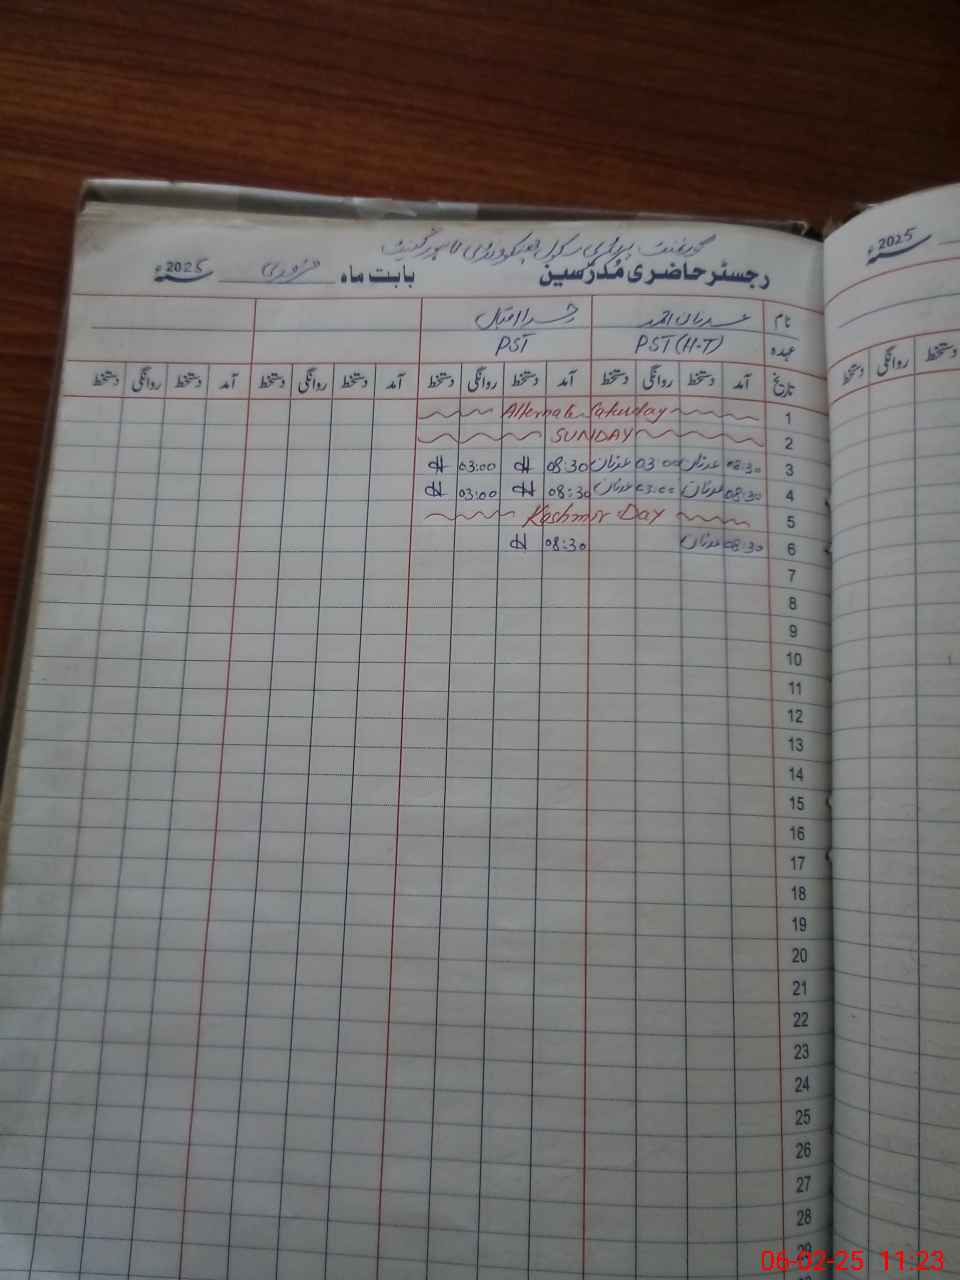 گورنمنٹ پرائمری سکول
رجسٹر حاضری مُدرّسین بابت ماہ فروری 2025ء
نام عدنان احمد اقبال
عہدہ PST (H-T) PST
تاریخ آمد دستخط روانگی دستخط آمد دستخط روانگی دستخط آمد دستخط روانگی دستخط آمد دستخط روانگی دستخط
1 Alternate Saturday
2 SUNDAY
3 08:30 عدنان 03:00 عدنان 08:30 03:00
4 08:30 عدنان 03:00 عدنان 08:30 03:00
5 Kashmir Day
6 08:30 عدنان 08:30
7
8
9
10
11
12
13
14
15
16
17
18
19
20
21
22
23
24
25
26
27
28
29
2025ء
دستخط روانگی دستخط
06-02-25 11:23